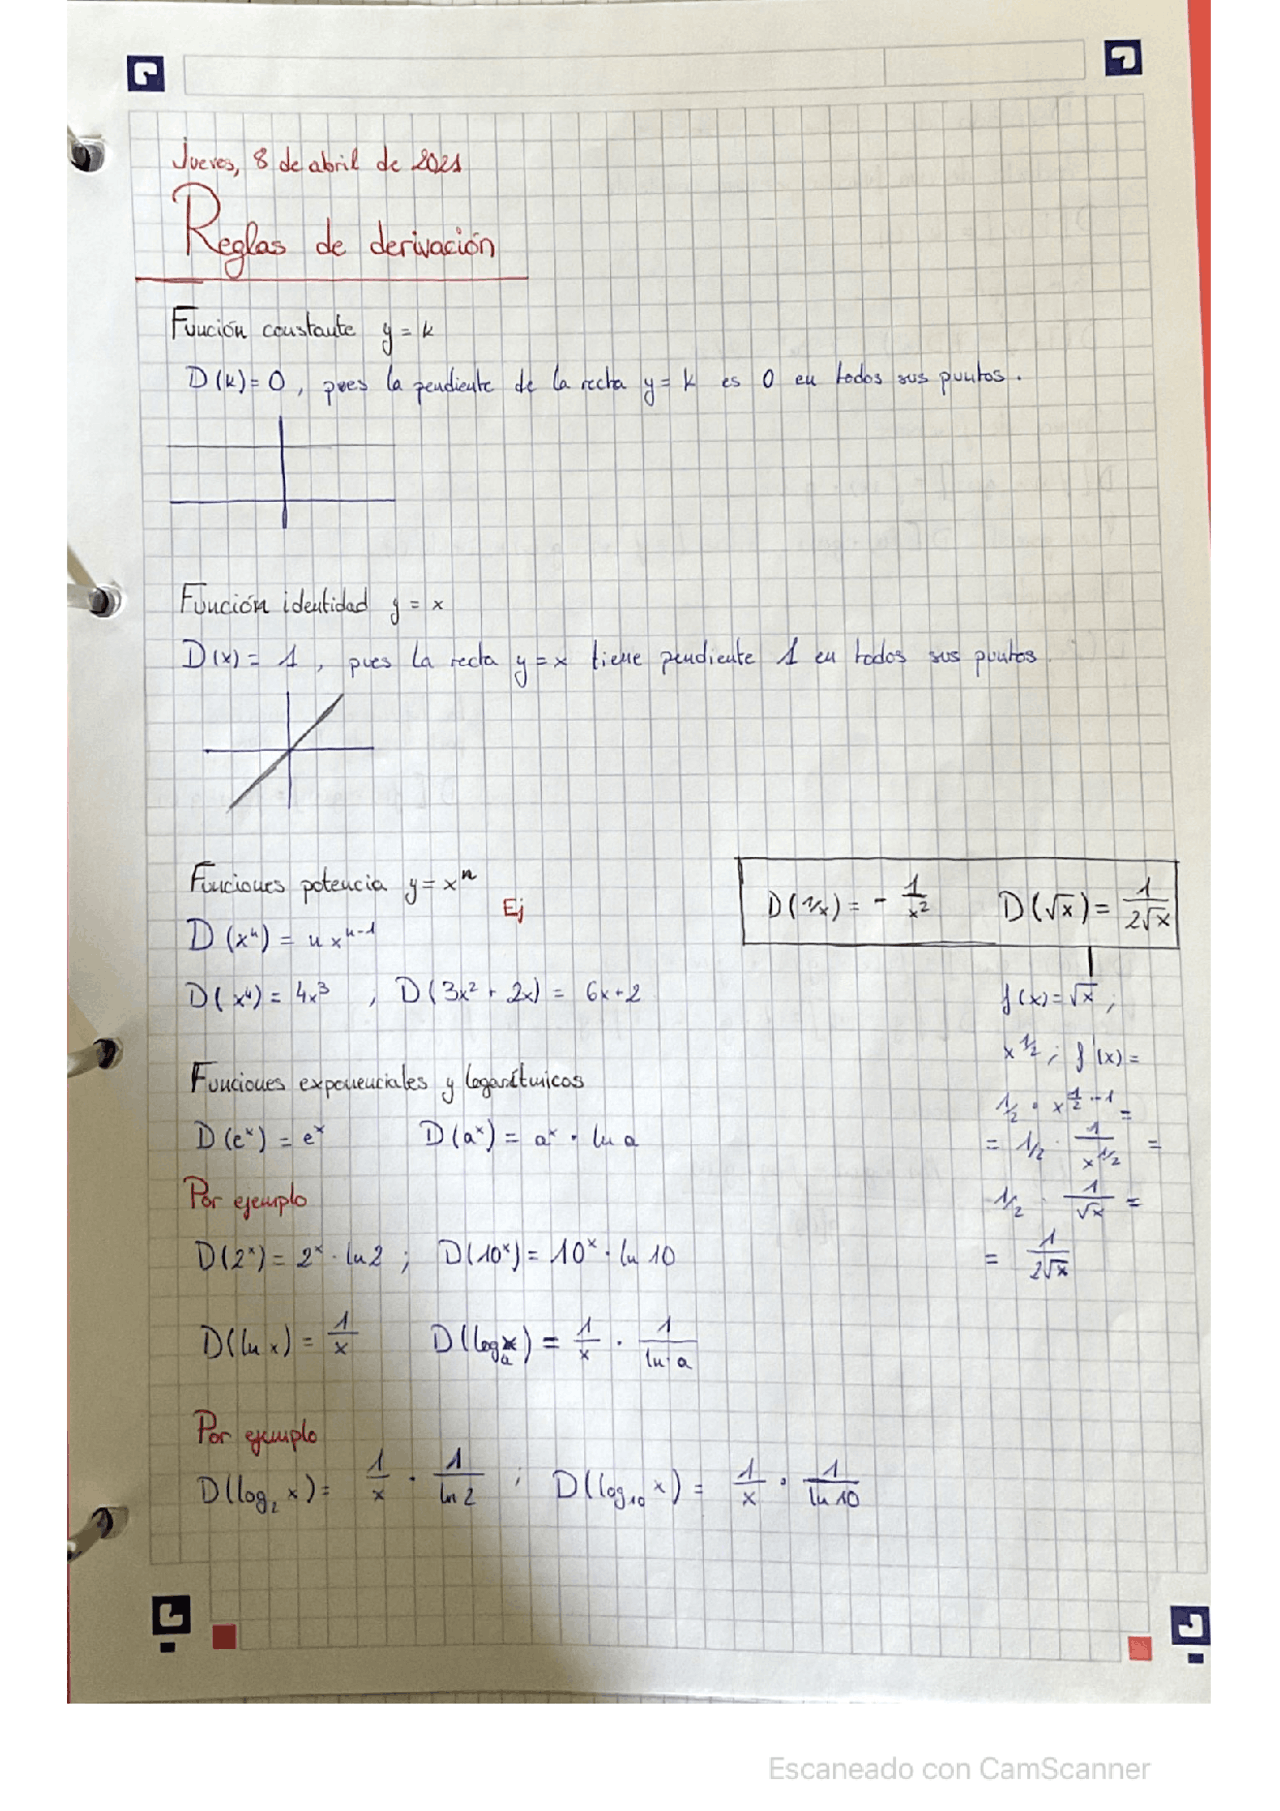 Jueves, 8 de abril de 2021
Reglas de derivación
Función constante y = k
D(k) = 0, pues la pendiente de la recta y = k es 0 en todos sus puntos.
Función identidad y = x
D(x) = 1, pues la recta y = x tiene pendiente 1 en todos sus puntos.
Funciones potencia y = xⁿ
Ej
D(xⁿ) = n xⁿ⁻¹
D(x⁴) = 4x³ , D(3x² + 2x) = 6x+2
D(1/x) = - 1/x² D(√x) = 1/2√x
f(x) = √x ;
x^1/2 ; f'(x) =
1/2 · x^(1/2 - 1) =
= 1/2 · 1/x^1/2 =
1/2 · 1/√x =
= 1/2√x
Funciones exponenciales y logarítmicos
D(eˣ) = eˣ D(aˣ) = aˣ · ln a
Por ejemplo
D(2ˣ) = 2ˣ · ln 2 ; D(10ˣ) = 10ˣ · ln 10
D(ln x) = 1/x D(logₐ x) = 1/x · 1/ln a
Por ejemplo
D(log₂ x) = 1/x · 1/ln 2 ; D(log₁₀ x) = 1/x · 1/ln 10
Escaneado con CamScanner